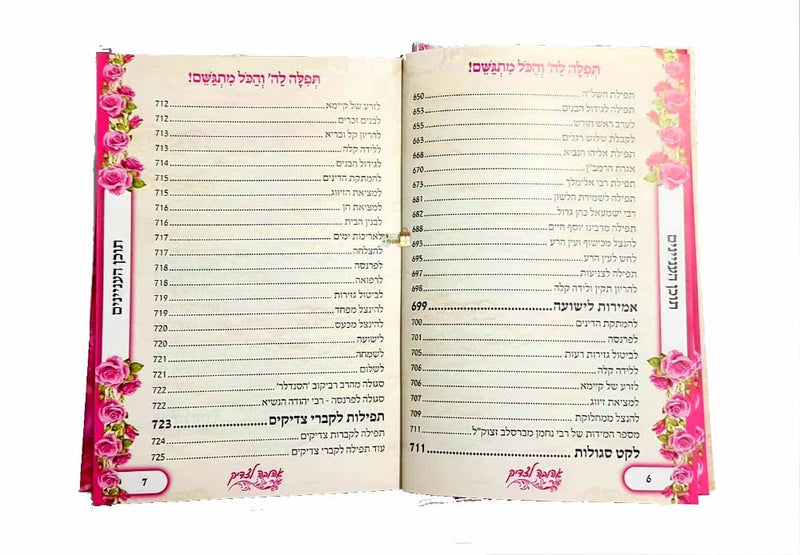 תְּפִלָּה לַה' וְהַכֹּל מִתְגַּשֵּׁם!
תפילת השל"ה 650
תפילה לגידול הבנים 653
לערב ראש חודש 655
לקבלת שלוש רגלים 663
תפילת אליהו הנביא 668
אגרת הרמב"ן 670
תפילת רבי אלימלך 673
תפילה לשמירת הלשון 681
רבי ישמעאל כהן גדול 682
תפילה מרבינו יוסף חיים 688
להנצל מכישוף ועין הרע 693
לחש לעין הרע 695
תפילה לצניעות 697
להריון תקין ולידה קלה 698
אמירות לישועה 699
להמתקת הדינים 700
לפרנסה 701
לביטול גזירות רעות 705
ללידה קלה 706
לזרע של קיימא 705
למציאת זיווג 707
להנצל ממחלוקת 709
מספר המידות של רבי נחמן מברסלב זצוק"ל 711
לקט סגולות 711
תוכן העניינים
6
אהובה לצדיק
תְּפִלָּה לַה' וְהַכֹּל מִתְגַּשֵּׁם!
לזרע של קיימא 712
לבנים זכרים 712
להריון קל ובריא 713
ללידה קלה 713
לגידול הבנים 714
להמתקת הדינים 715
למציאת הזיווג 715
למציאת חן 716
לבנין הבית 716
לאריכות ימים 717
להצלחה 717
לפרנסה 718
לרפואה 718
לביטול גזירות 719
להינצל מפחד 719
להינצל מכעס 720
לישועה 720
לשמחה 721
לשלום 721
סגולה מהרב רביקוב 'הסנדלר' 722
סגולה לפרנסה - רבי יהודה הנשיא 722
תפילות לקברי צדיקים 723
תפילה לקברות צדיקים 724
עוד תפילה לקברי צדיקים 725
תוכן העניינים
7
אהובה לצדיק